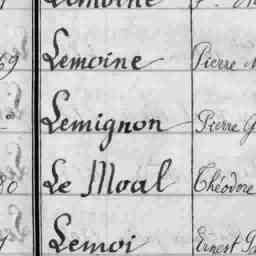 Lemoine
Lemoine Pierre
Lemignon Pierre G
Le Moal Théodore
Lemoi Ernest